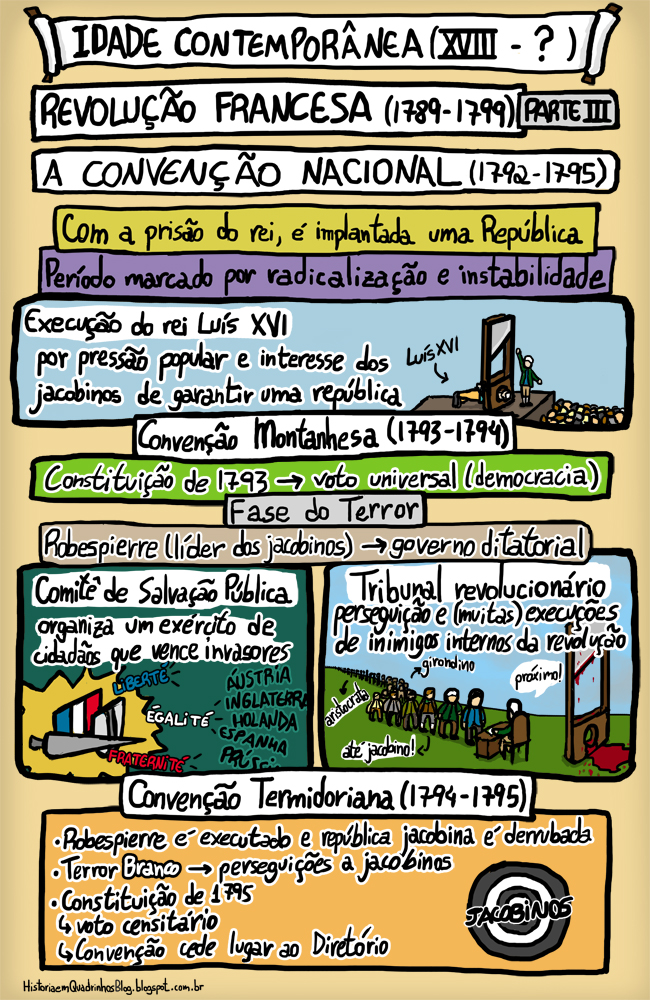 IDADE CONTEMPORÂNEA (XVIII - ?)
REVOLUÇÃO FRANCESA (1789-1799) PARTE III
A CONVENÇÃO NACIONAL (1792-1795)
Com a prisão do rei, é implantada uma República
Período marcado por radicalização e instabilidade
Execução do rei Luís XVI
por pressão popular e interesse dos
jacobinos de garantir uma república
Luís XVI
Convenção Montanhesa (1793-1794)
Constituição de 1793 → voto universal (democracia)
Fase do Terror
Robespierre (líder dos jacobinos) → governo ditatorial
Comitê de Salvação Pública
organiza um exército de
cidadãos que vence invasores
LIBERTÉ
ÉGALITÉ
FRATERNITÉ
ÁUSTRIA
INGLATERRA
HOLANDA
ESPANHA
PRÚSSIA
Tribunal revolucionário
perseguição e (muitas) execuções
de inimigos internos da revolução
girondino
próximo!
aristocrata
até jacobino!
Convenção Termidoriana (1794-1795)
• Robespierre é executado e república jacobina é derrubada
• Terror Branco → perseguições a jacobinos
• Constituição de 1795
↳ voto censitário
↳ Convenção cede lugar ao Diretório
JACOBINOS
HistoriaemQuadrinhosBlog.blogspot.com.br